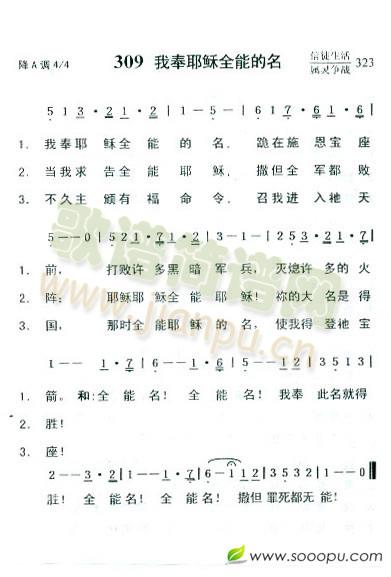 降A调4/4
309 我奉耶稣全能的名
信徒生活
属灵争战
323
5 1 3 · 2 1 · 2 | 1 — · 5 | 6 1 7 · 6 1 · 5 |
1. 我奉耶 稣全能的名, 跪在施恩宝座
2. 当我求 告全能耶稣, 撒但全军都败
3. 不久主 颁有福命令, 召我进入祂天
5 — — 0 | 5 2 1 · 7 2 · 1 |
1. 前, 打败许多黑暗军兵, 灭熄许多的火
2. 阵; 耶稣耶稣全能耶稣! 祢的大名是得
3. 国, 那时全能耶稣的名, 使我得登祂宝
1. 箭。 和:全能名! 全能名! 我奉此名就得
2. 胜!
3. 座!
胜! 全能名! 全能名! 撒但罪死都无能!
歌谱简谱网
www.jianpu.cn
www.sooopu.com